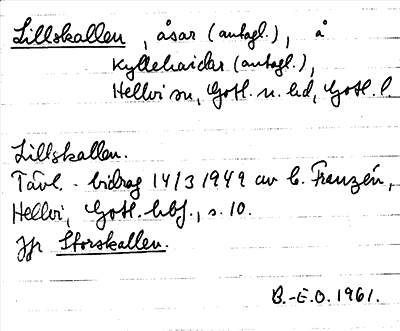 Lillskallen, åsar (antagl.), å
Kyllehaidar (antagl.),
Hellvi sn, Gotl. n. hd, Gotl. l
Lillskallen.
Tävl.-bidrag 14/3 1949 av C. Franzén,
Hellvi, Gotl. hbf., s. 10.
Jfr Storskallen.
B.-E.O. 1961.